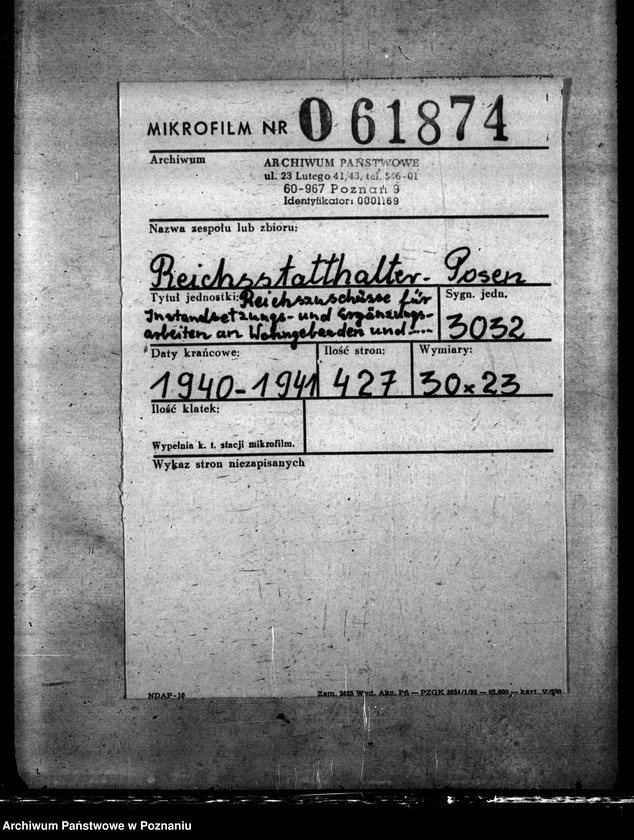 MIKROFILM NR 061874
Archiwum
ARCHIWUM PAŃSTWOWE
ul. 23 Lutego 41/43, tel. 546-01
60-967 Poznań 9
Identyfikator: 0001169
Nazwa zespołu lub zbioru:
Reichsstatthalter - Posen
Tytuł jednostki: Reichszuschüsse für
Instandsetzungs- und Ergänzungs-
arbeiten an Wohngebäuden und ....
Sygn. jedn.
3032
Daty krańcowe:
1940-1941
Ilość stron:
427
Wymiary:
30x23
Ilość klatek:
Wypełnia k. t. stacji mikrofilm.
Wykaz stron niezapisanych
NDAP-10
Zam. Wyd. Akc. Pń — PZGK
Archiwum Państwowe w Poznaniu